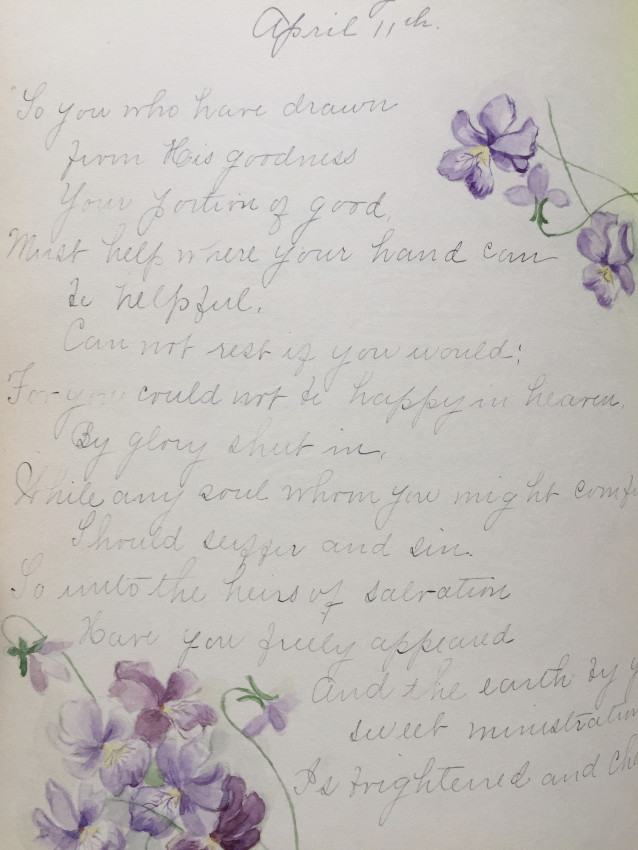 April 11th.
"So you who have drawn
from His goodness
Your portion of good,
Must help where your hand can
be helpful,
Can not rest if you would;
For you could not be happy in heaven,
By glory shut in,
While any soul whom you might
Should suffer and sin.
So unto the heirs of salvation
Have you freely appeared
And the earth by
sweet ministration
Is brightened and